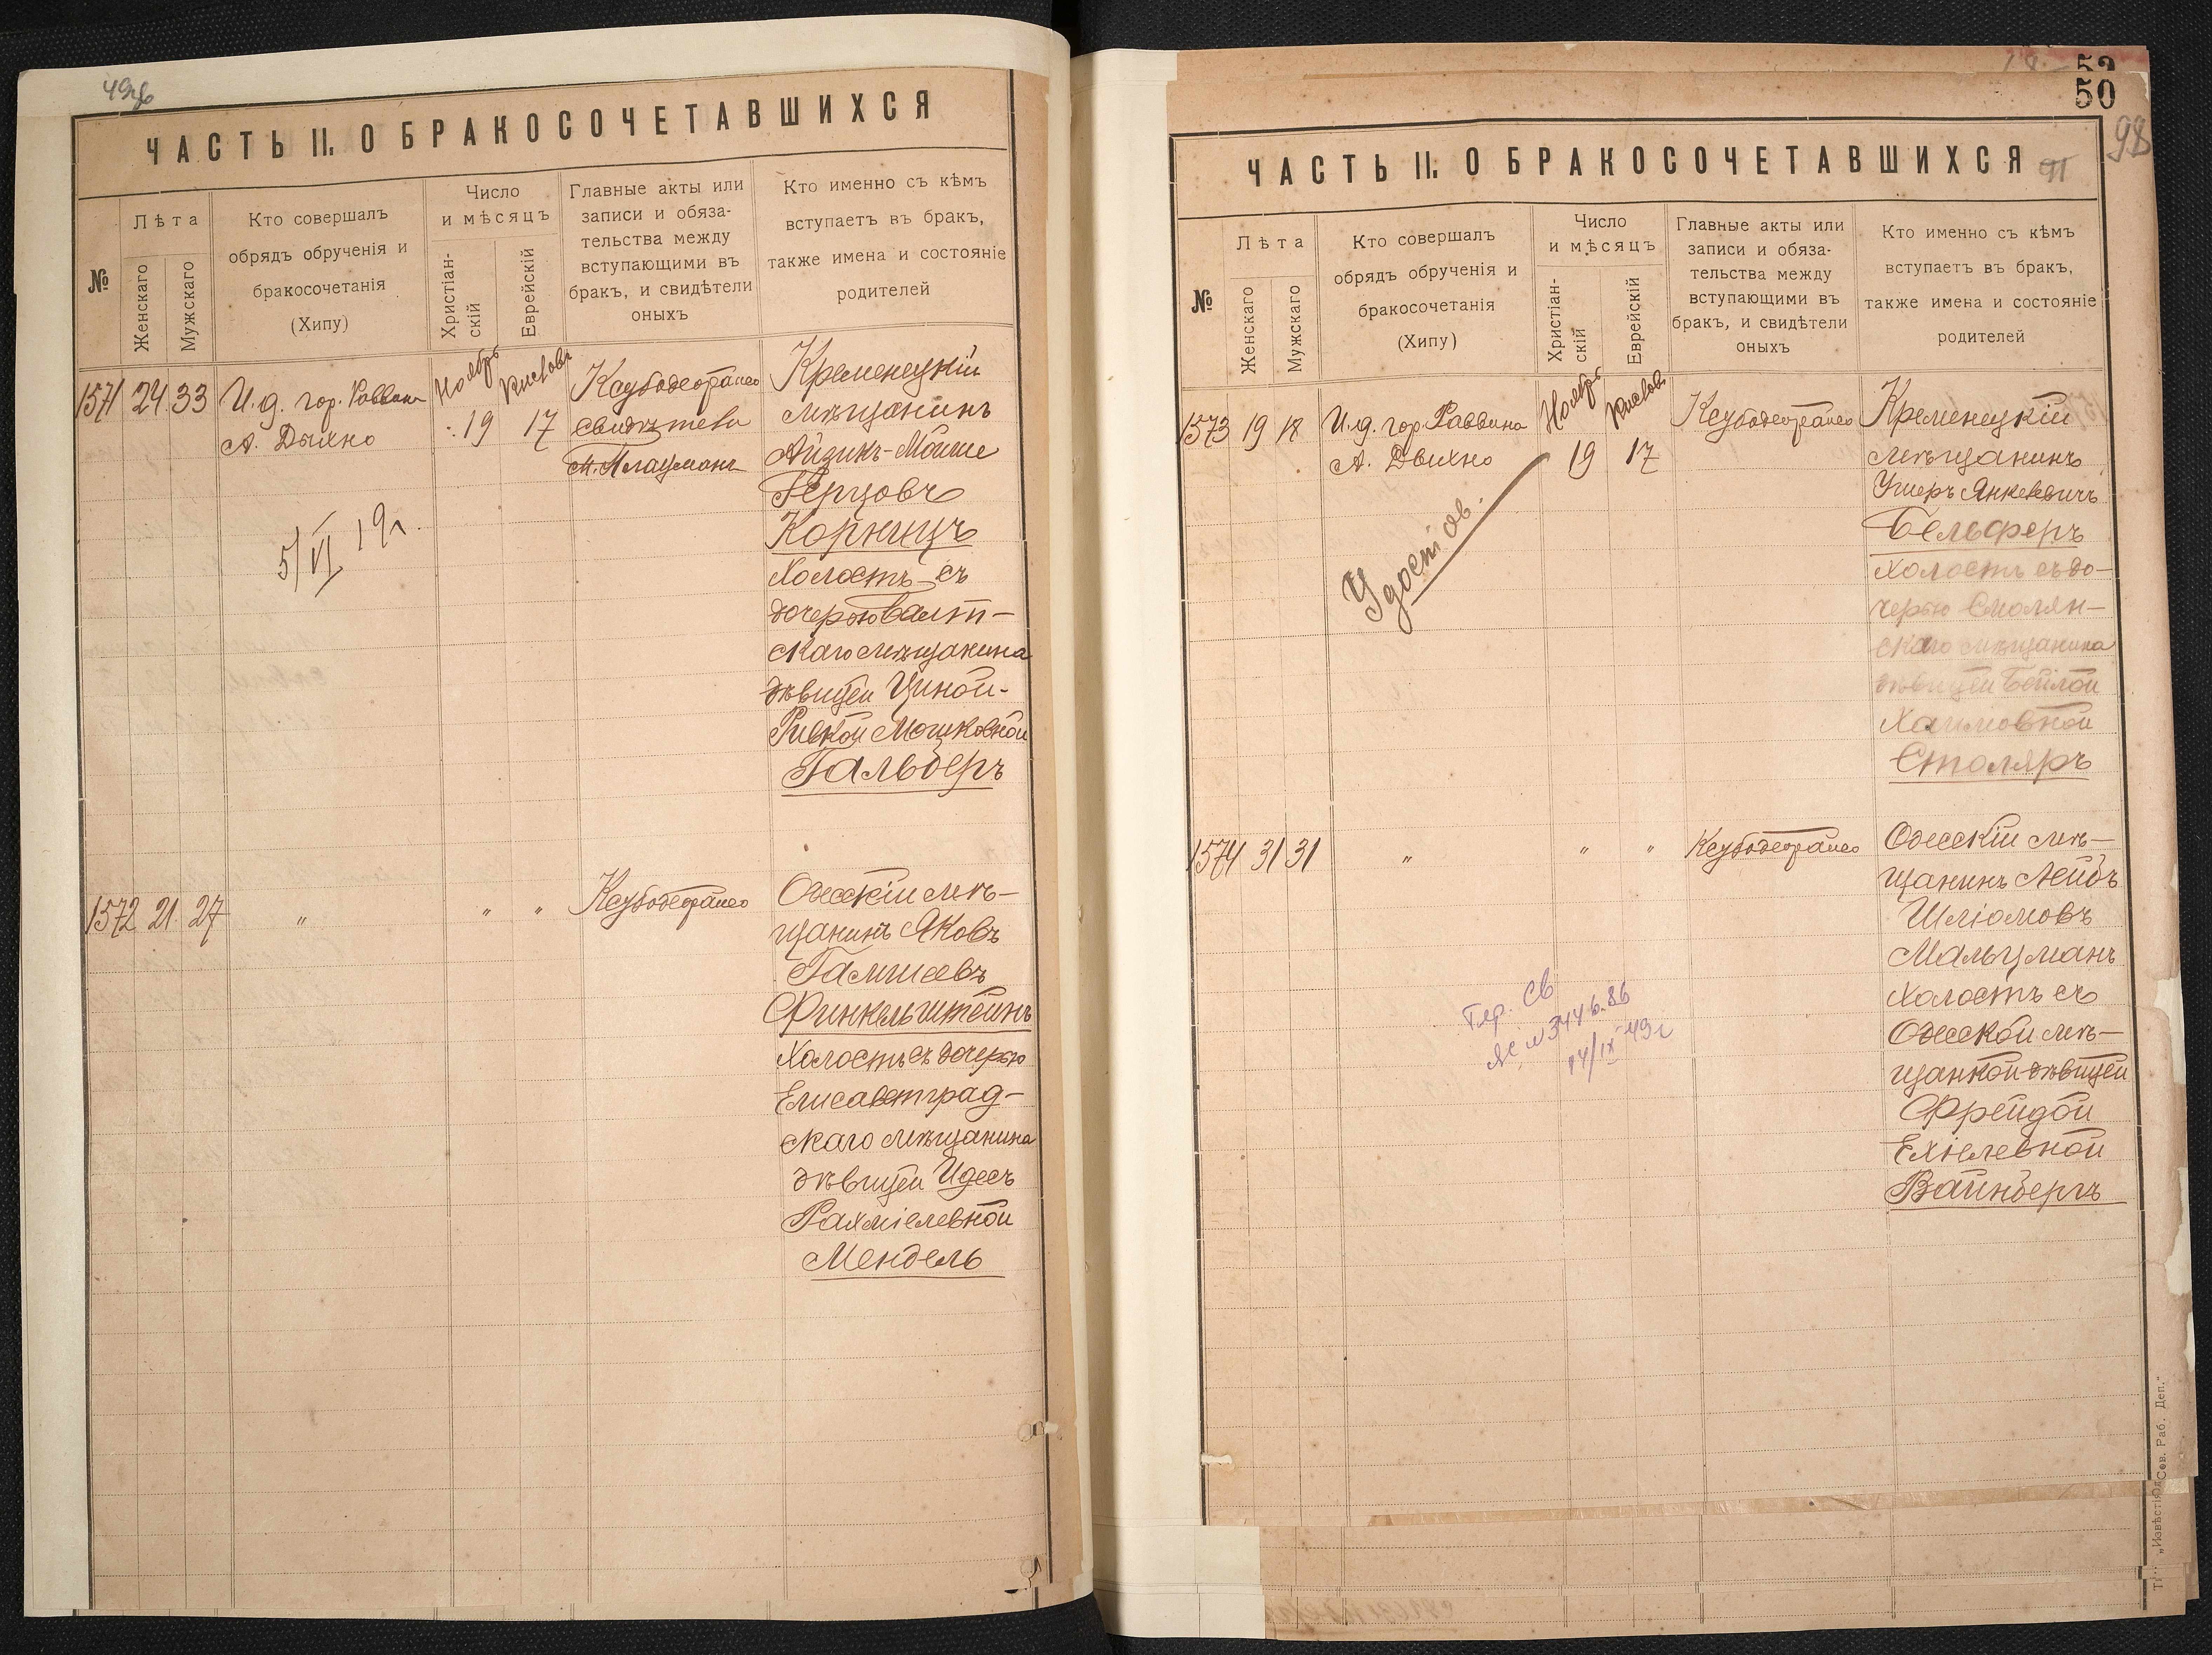 ЧАСТЬ II. О БРАКОСОЧЕТАВШИХСЯ
№
Лѣта
Женскаго
Мужскаго
Кто совершалъ
обрядъ обрученія и
бракосочетанія
(Хипу)
Число
и мѣсяцъ
Христіан-
скій
Еврейскій
Главные акты или
записи и обяза-
тельства между
вступающими въ
бракъ, и свидѣтели
оныхъ
Кто именно съ кѣмъ
вступаетъ въ бракъ,
также имена и состояніе
родителей
1571 24 33
И. д. гор. Раввина
А. Дыхно
Ноябрь
19
Кислевъ
17
свидѣтели
Кременецкій
мѣщанинъ
Айзикъ-Мойше
Герцовъ
Корницъ
холостъ съ
дочерью Балт-
скаго мѣщанина
дѣвицей Циной-
Ривкой Мошковной
Гальберъ
5/VI 19г.
1572 21 27
"
" "
Одесскій мѣ-
щанинъ Яковъ
Финкельштейнъ
холостъ съ дочерью
Елисаветград-
скаго мѣщанина
дѣвицей Идесъ
Рахміелевной
Мендель
50
98
ЧАСТЬ II. О БРАКОСОЧЕТАВШИХСЯ
№
Лѣта
Женскаго
Мужскаго
Кто совершалъ
обрядъ обрученія и
бракосочетанія
(Хипу)
Число
и мѣсяцъ
Христіан-
скій
Еврейскій
Главные акты или
записи и обяза-
тельства между
вступающими въ
бракъ, и свидѣтели
оныхъ
Кто именно съ кѣмъ
вступаетъ въ бракъ,
также имена и состояніе
родителей
1573 19 18
И. д. гор. Раввина
А. Дыхно
Ноябрь
19
Кислевъ
17
Кременецкій
мѣщанинъ
Ушеръ Янкелевичъ
Бельферъ
холостъ съ до-
черью Смолян-
скаго мѣщанина
дѣвицей Бейлой
Хаимовной
Столяръ
1574 31 31
"
" "
Одесскій мѣ-
щанинъ Лейбъ
Шліомовъ
Мальцманъ
холостъ съ
Одесской мѣ-
щанкой дѣвицей
Фрейдой
Ехіелевной
Вайнбергъ
14/IX 49г
„Извѣстія Од. Сов. Раб. Деп.“